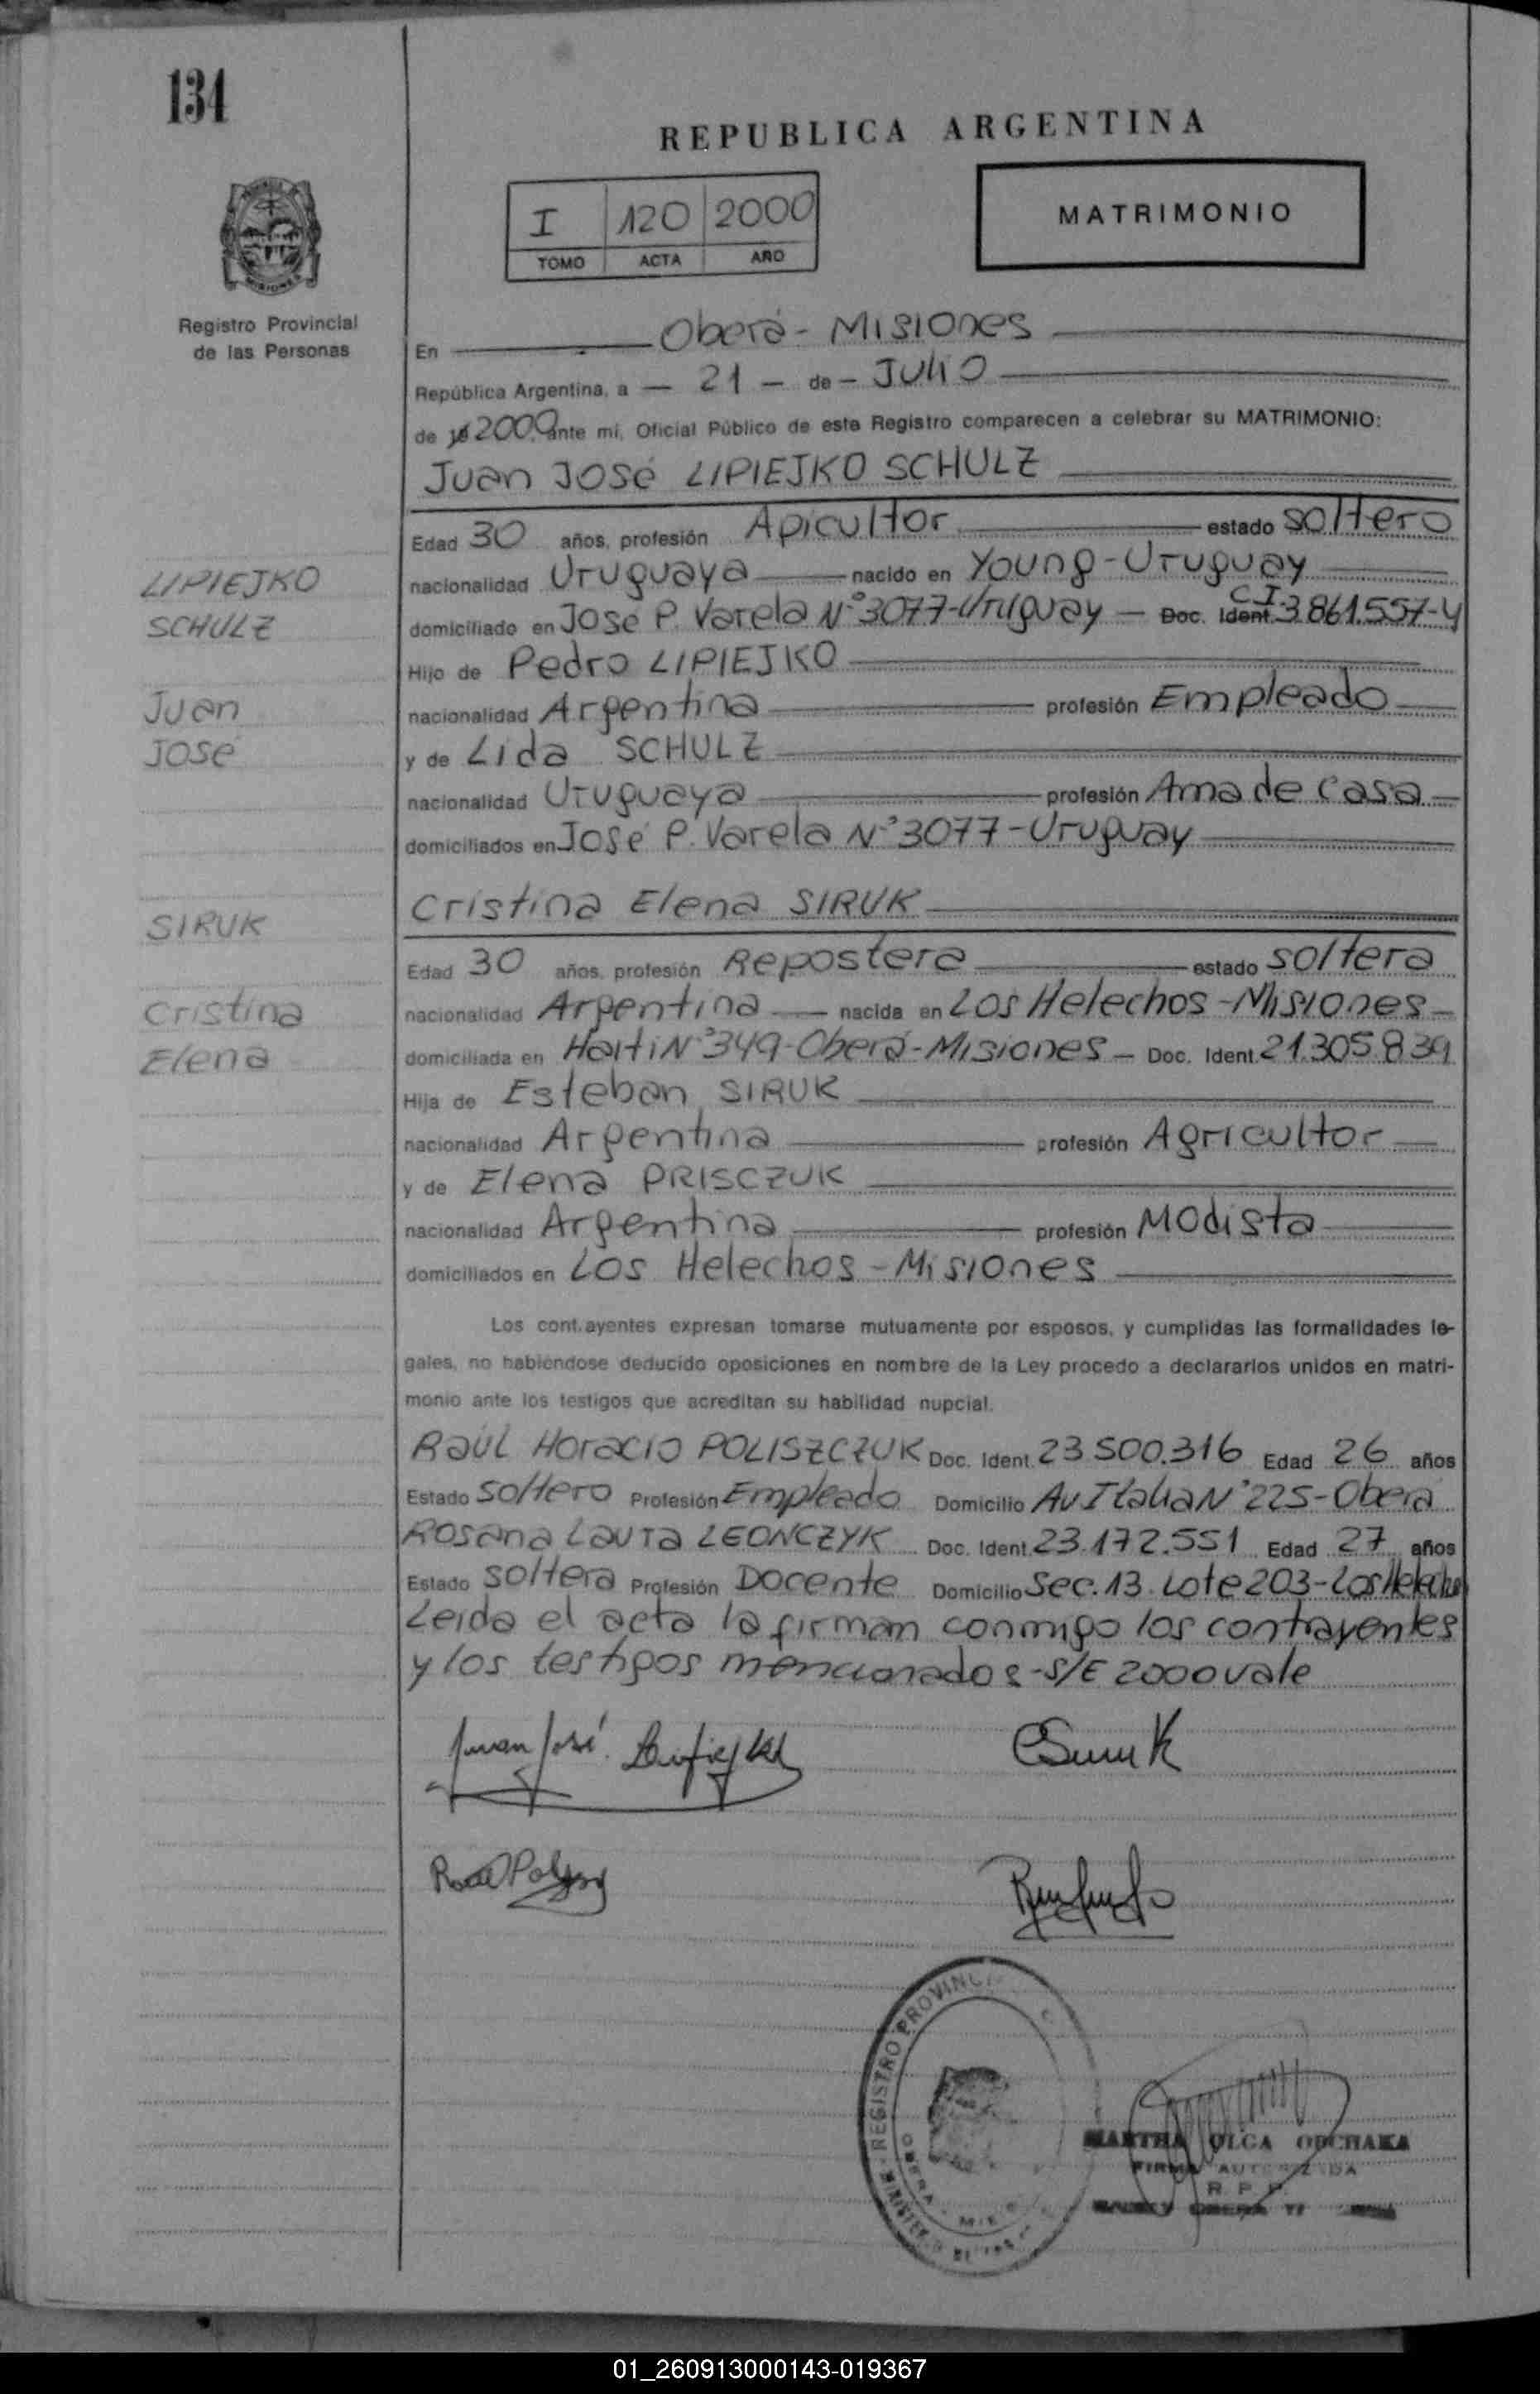 134
REPUBLICA ARGENTINA
I 120 2000
TOMO ACTA AÑO
MATRIMONIO
MISIONES
Registro Provincial
de las Personas
En Oberá - Misiones
República Argentina, a - 21 - de - Julio
de 2000 ante mi, Oficial Público de este Registro comparecen a celebrar su MATRIMONIO:
Juan José LIPIEJKO SCHULZ
Edad 30 años, profesión Apicultor estado soltero
LIPIEJKO
nacionalidad Uruguaya nacido en Young - Uruguay
SCHULZ
domiciliado en José P. Varela N° 3077 - Uruguay - Doc. Ident. C.I. 3.861.557-4
Hijo de Pedro LIPIEJKO
Juan
nacionalidad Argentina profesión Empleado
José
y de Lida SCHULZ
nacionalidad Uruguaya profesión Ama de Casa
domiciliados en José P. Varela N° 3077 - Uruguay
SIRUK
Cristina Elena SIRUK
Edad 30 años, profesión Repostera estado soltera
Cristina
nacionalidad Argentina nacida en Los Helechos - Misiones -
Elena
domiciliada en Haití N° 349 - Oberá - Misiones - Doc. Ident. 21.305.839
Hija de Esteban SIRUK
nacionalidad Argentina profesión Agricultor
y de Elena PRISCZUK
nacionalidad Argentina profesión Modista
domiciliados en Los Helechos - Misiones
Los contrayentes expresan tomarse mutuamente por esposos, y cumplidas las formalidades le-
gales, no habiéndose deducido oposiciones en nombre de la Ley procedo a declararlos unidos en matri-
monio ante los testigos que acreditan su habilidad nupcial.
Raúl Horacio POLISZCZUK Doc. Ident. 23.500.316 Edad 26 años
Estado soltero Profesión Empleado Domicilio Av Italia N° 225 - Oberá
Rosana Laura LEONCZYK Doc. Ident. 23.172.551 Edad 27 años
Estado soltera Profesión Docente Domicilio Sec. 13. Lote 203 - Los Helechos
Leida el acta la firman conmigo los contrayentes
y los testigos mencionados - S/E 2000 vale
Juan José Lipiejko
CSiruk
REGISTRO PROVINCI
OBERA - MIS
MARTHA OLGA ODCHAKA
FIRMA AUTORIZADA
R. P. P.
01_260913000143-019367